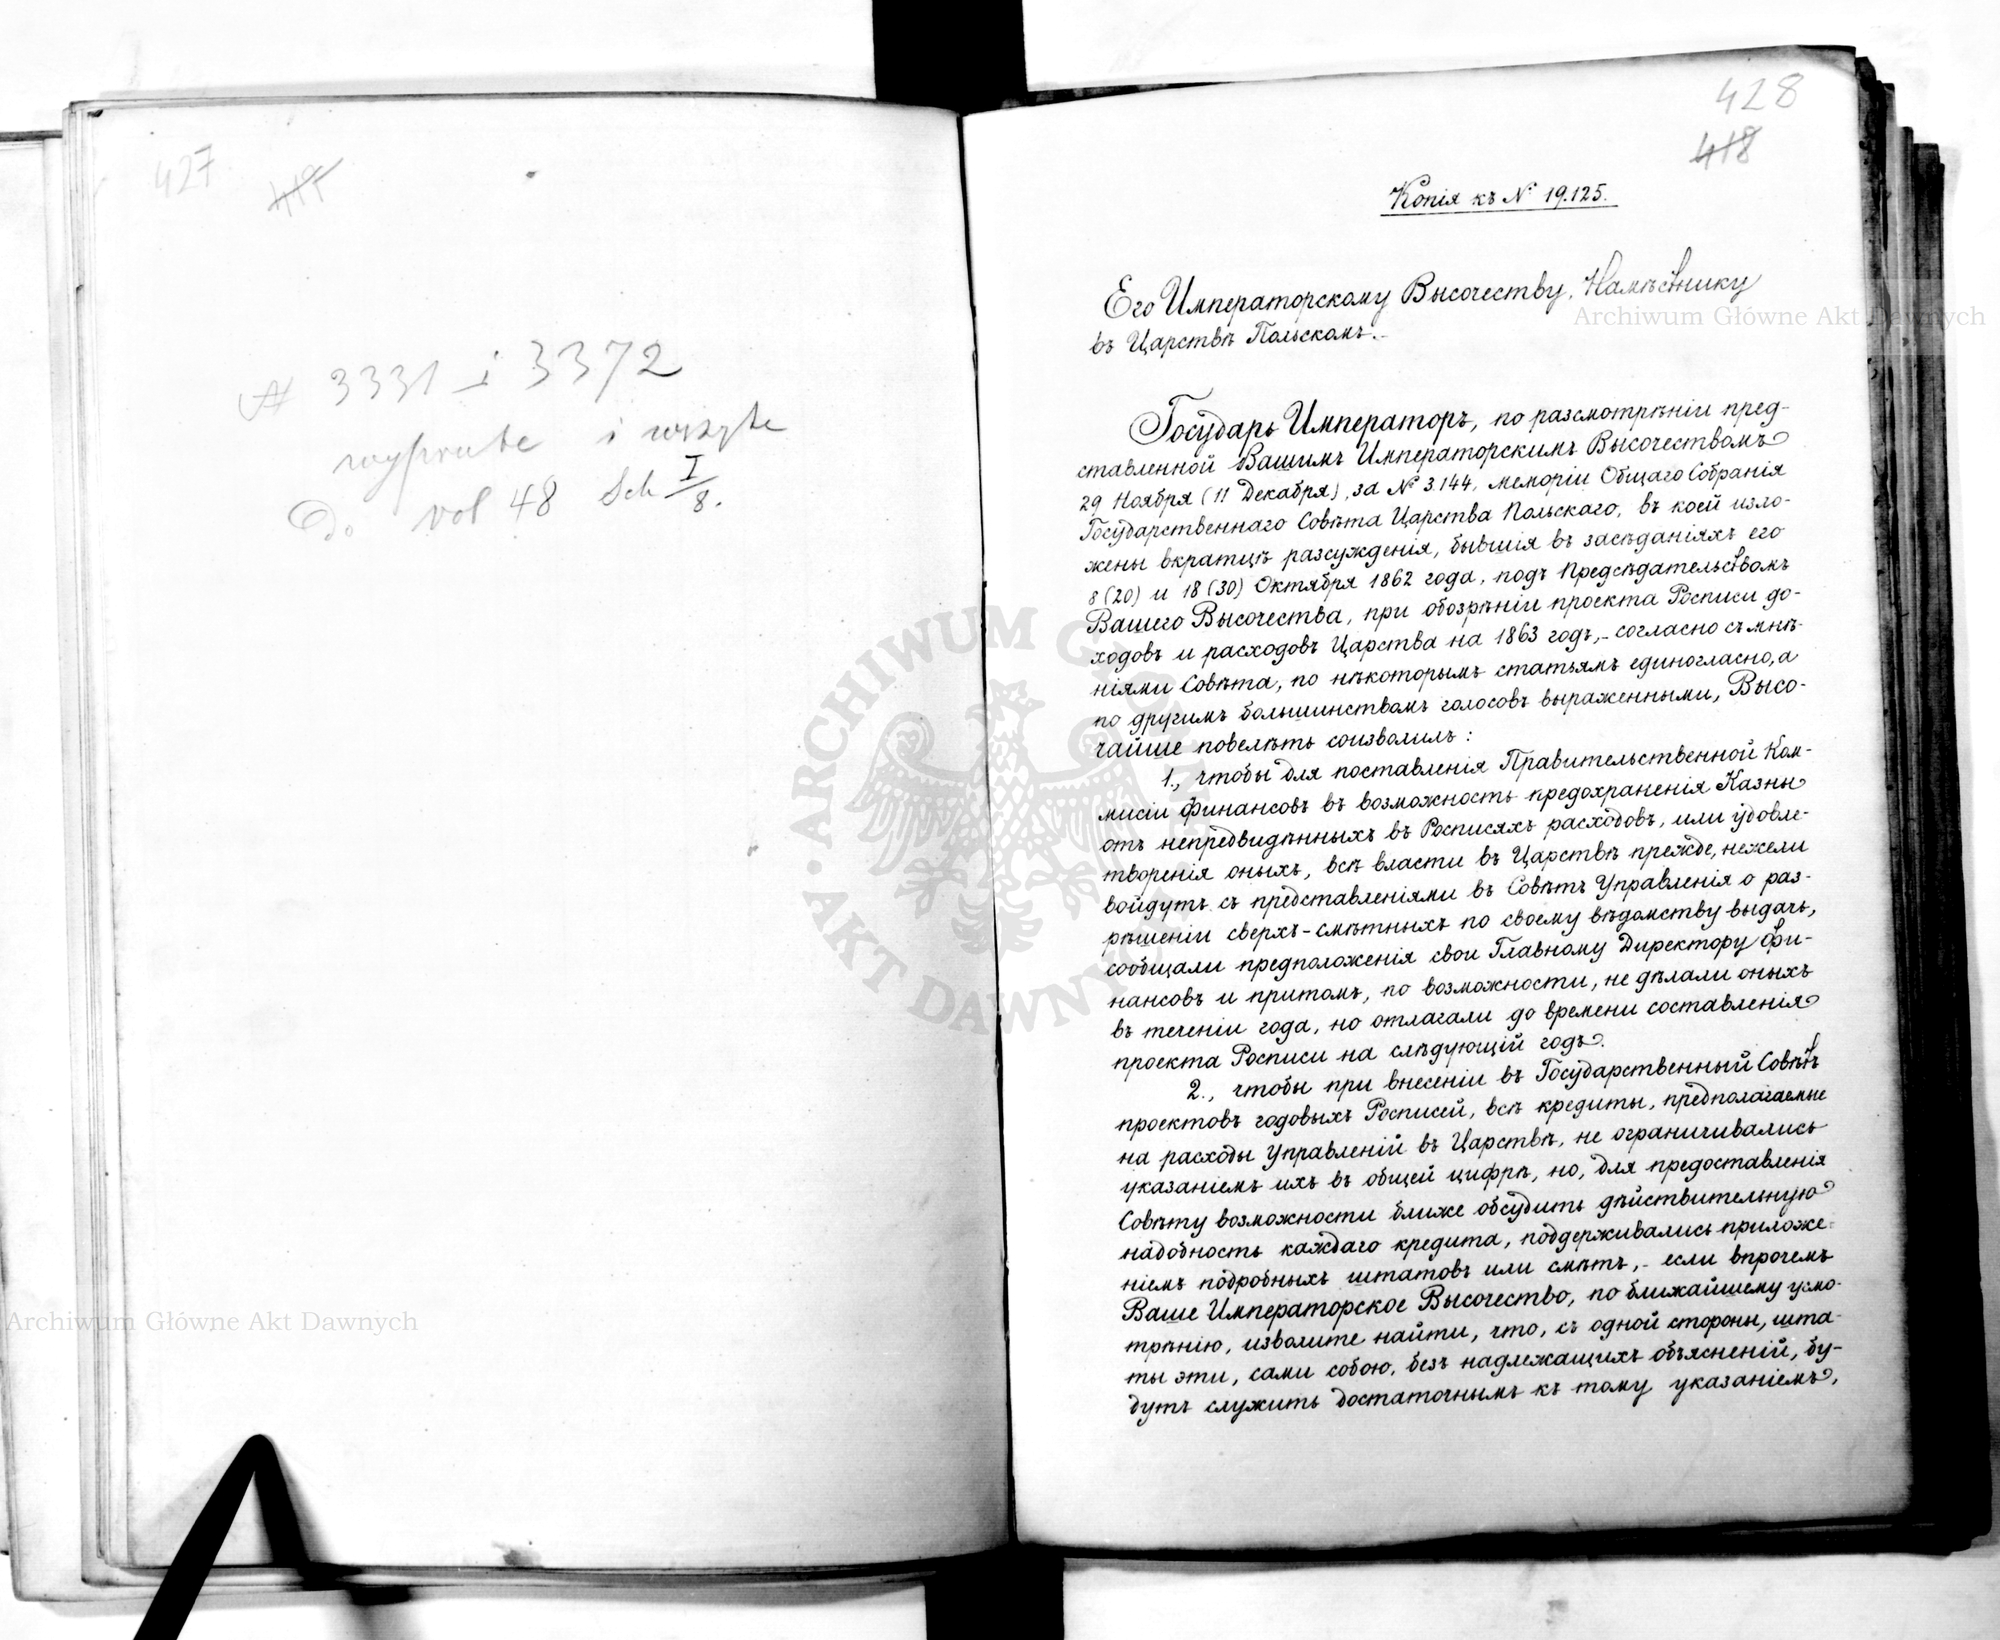 427
417
№ 3331 i 3372
wyprute i wszyte
Do vol 48 Sch I/8.
428
418
Копія къ № 19.125.
Его Императорскому Высочеству, Намѣстнику
въ Царствѣ Польскомъ.
Государь Императоръ, по разсмотрѣніи пред-
ставленной Вашимъ Императорскимъ Высочествомъ
29 Ноября (11 Декабря), за № 3.144, меморіи Общаго Собранія
Государственнаго Совѣта Царства Польскаго, въ коей изло-
жены вкратцѣ разсужденія, бывшія въ засѣданіяхъ его
8 (20) и 18 (30) Октября 1862 года, подъ Предсѣдательствомъ
Вашего Высочества, при обозрѣніи проекта Росписи до-
ходовъ и расходовъ Царства на 1863 годъ,- согласно съ мнѣ-
ніями Совѣта, по нѣкоторымъ статьямъ единогласно, а
по другимъ большинствомъ голосовъ выраженными, Высо-
чайше повелѣть соизволилъ:
1., чтобы для поставленія Правительственной Ком-
мисіи Финансовъ въ возможность предохраненія Казны
отъ непредвидѣнныхъ въ Росписяхъ расходовъ, или удовле-
творенія оныхъ, всѣ власти въ Царствѣ прежде, нежели
войдутъ съ представленіями въ Совѣтъ Управленія о раз-
рѣшеніи сверхъ-смѣтныхъ по своему вѣдомству выдачъ,
сообщали предположенія свои Главному Директору Фи-
нансовъ и притомъ, по возможности, не дѣлали оныхъ
въ теченіи года, но отлагали до времени составленія
проекта Росписи на слѣдующій годъ.
2., чтобы при внесеніи въ Государственный Совѣтъ
проектовъ годовыхъ Росписей, всѣ кредиты, предполагаемые
на расходы Управленій въ Царствѣ, не ограничивались
указаніемъ ихъ въ общей цифрѣ, но, для предоставленія
Совѣту возможности ближе обсудить дѣйствительную
надобность каждаго кредита, поддерживались приложе-
ніемъ подробныхъ штатовъ или смѣтъ,- если впрочемъ
Ваше Императорское Высочество, по ближайшему усмо-
трѣнію, изволите найти, что, съ одной стороны, шта-
ты эти, сами собою, безъ надлежащихъ объясненій, бу-
дутъ служить достаточнымъ къ тому указаніемъ,
Archiwum Główne Akt Dawnych
Archiwum Główne Akt Dawnych
ARCHIWUM GŁÓWNE · AKT DAWNYCH ·